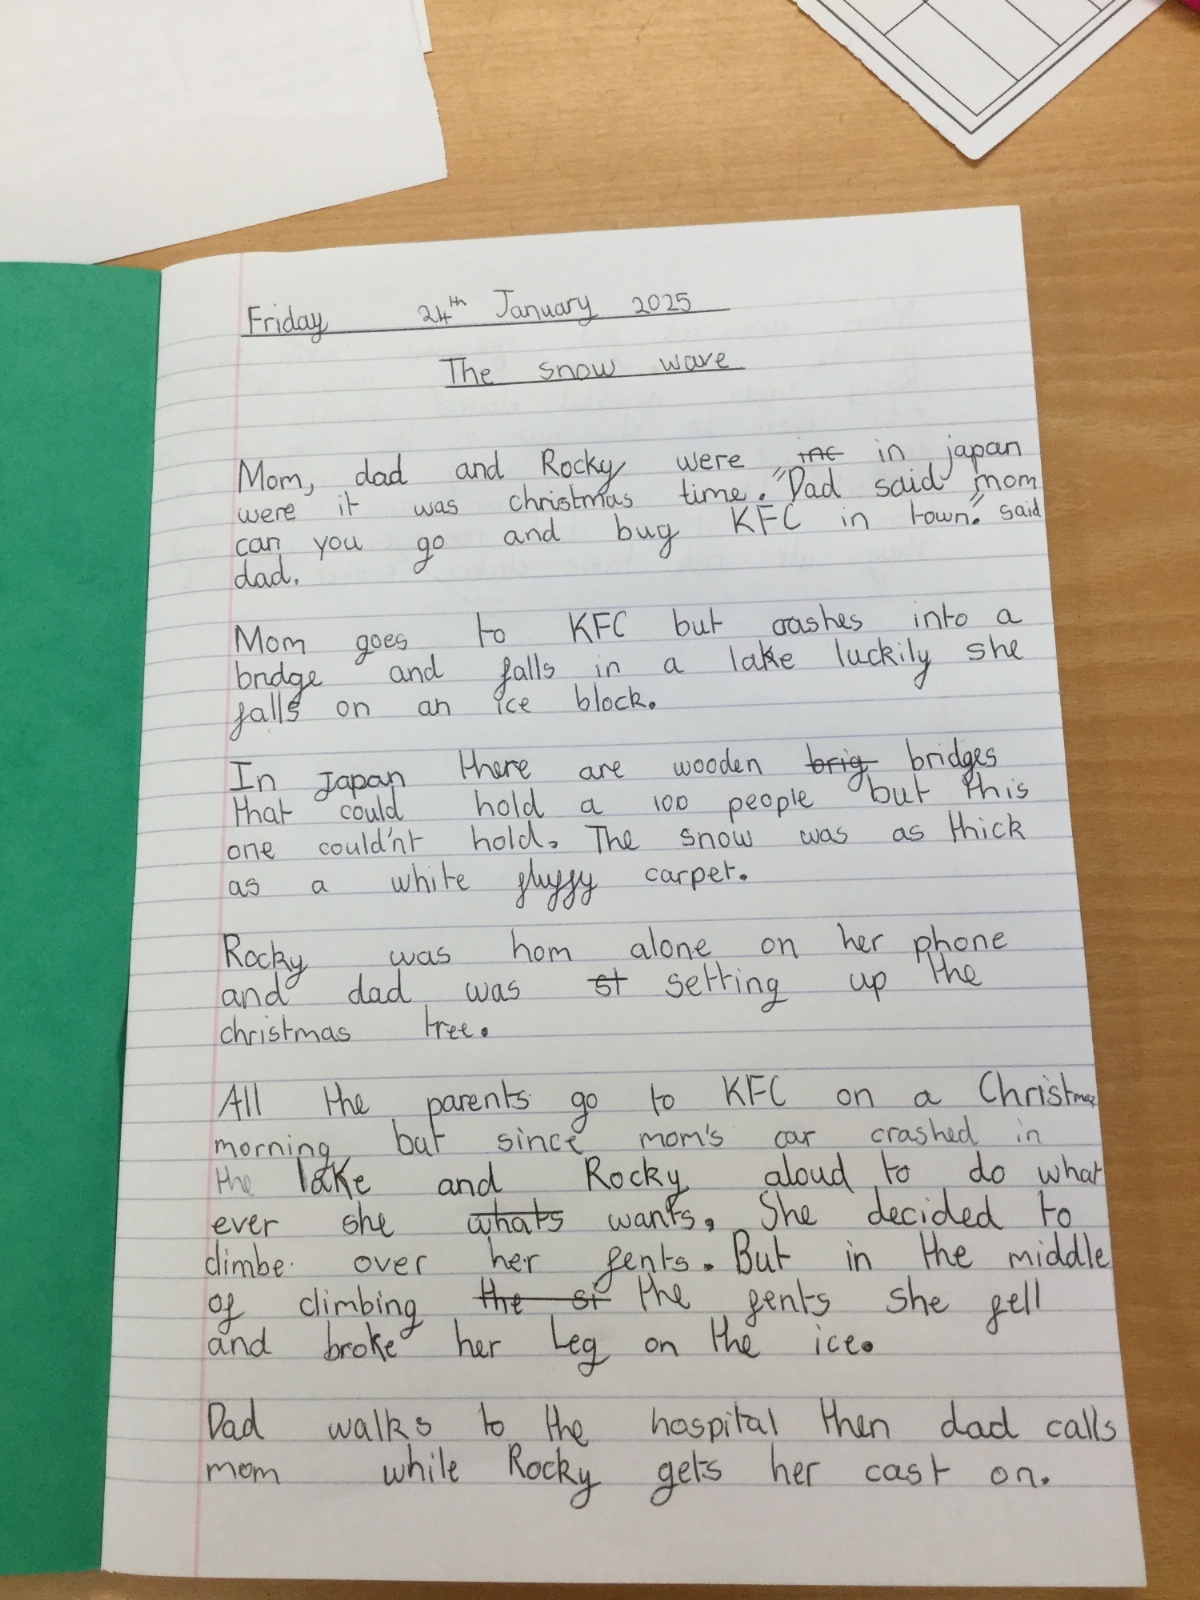 Friday 24th January 2025
The snow wave
Mom, dad and Rocky were ~~inc~~ in japan
were it was christmas time. "Dad said mom
can you go and bug KFC in town." said
dad.
Mom goes to KFC but crashes into a
bridge and falls in a lake luckily she
falls on an ice block.
In Japan there are wooden ~~brig~~ bridges
that could hold a 100 people but this
one could'nt hold. The snow was as thick
as a white fluffy carpet.
Rocky was hom alone on her phone
and dad was ~~st~~ setting up the
christmas tree.
All the parents go to KFC on a Christmas
morning but since mom's car crashed in
the lake and Rocky aloud to do what
ever she ~~whats~~ wants. She decided to
climbe over her fents. But in the middle
of climbing ~~the st~~ the fents she fell
and broke her Leg on the ice.
Dad walks to the hospital then dad calls
mom while Rocky gets her cast on.